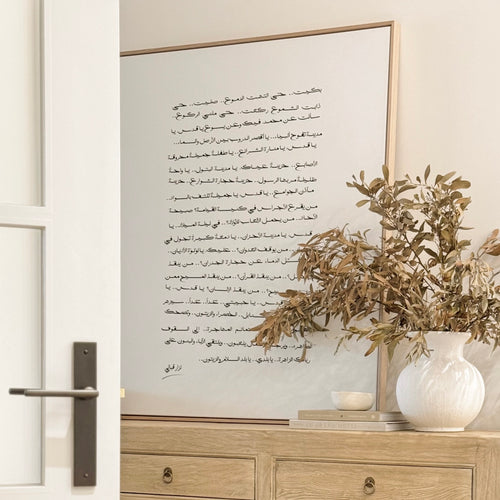 بكيت.. حتى انتهت الدموع. صليت.. حتى
ذابت الشموع ركعت.. حتى ملني الركوع.
سألت عن محمد، فيك وعن يسوع يا قدس، يا
مدينة تفوح أنبياء.. يا أقصر الدروب بين الأرض والسماء..
يا قدس، يا منارة الشرائع.. يا طفلةً جميلةً محروقة
الأصابع.. حزينةٌ عيناك، يا مدينة البتول.. يا واحةً
ظليلةً مر بها الرسول.. حزينةٌ حجارة الشوارع.. حزينةٌ
مآذن الجوامع.. يا قدس، يا جميلةً تلتف بالسواد..
من يقرع الأجراس في كنيسة القيامة؟ صبيحة
الآحاد.. من يحمل الألعاب للأولاد؟.. في ليلة الميلاد.. يا
قدس، يا مدينة الأحزان.. يا دمعةً كبيرةً تجول في
من يوقف العدوان؟.. عليك، يا لؤلؤة الأديان..
الدماء عن حجارة الجدران؟.. من ينقذ
من ينقذ القرآن؟.. من ينقذ المسيح ممن
من ينقذ الإنسان؟ يا قدس.. يا
قدس.. يا حبيبتي.. غداً.. غداً.. سيزهر
السنابل.. الخضراء والزيتون.. وتضحك
الحمائم المهاجرة.. إلى السقوف
الطاهره.. ويرجع يلعبون.. ويلتقي الآباء والبنون على
رباك الزاهرة.. يا بلدي.. يا بلد السلام والزيتون..
نزار قباني